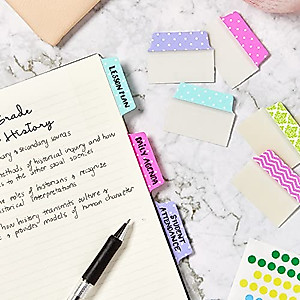 Grade
History
& secondary sources
methods of historical inquiry and how
to the other social sciences
roles of historians & recognize
historical interpretations
how history transmits culture &
& ponder models of human character
LESSON PLAN
DAILY AGENDA
STUDENT
ATTENDANCE